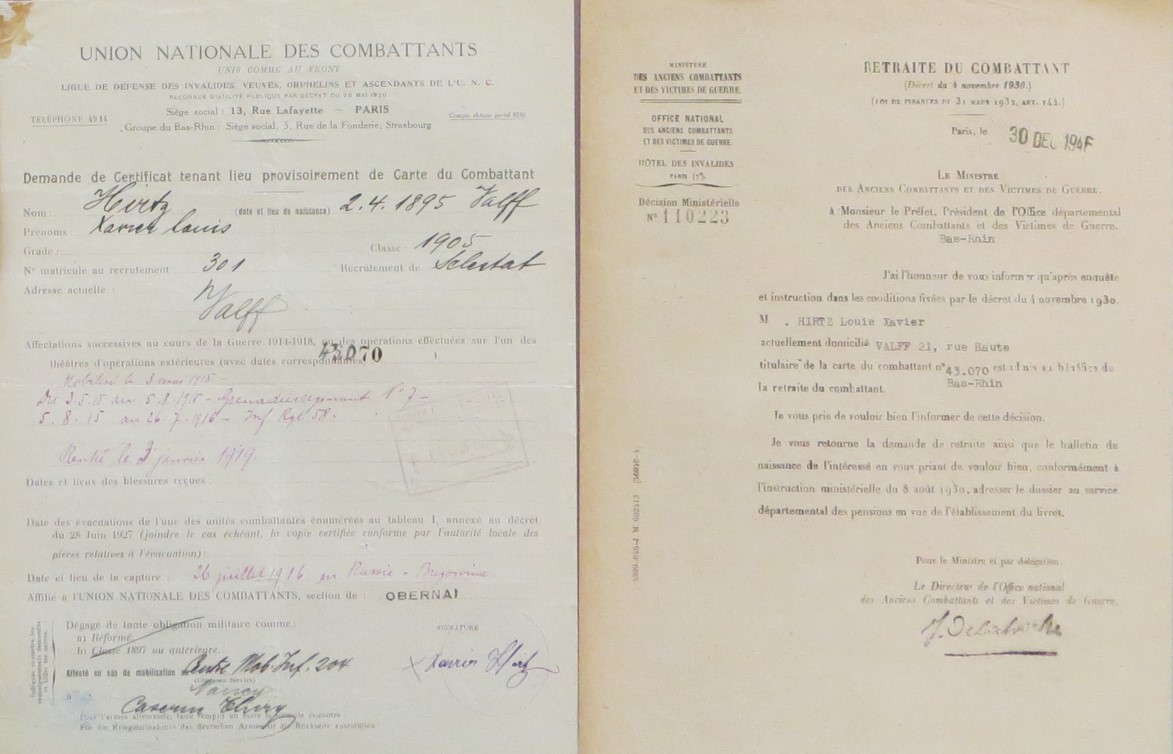 UNION NATIONALE DES COMBATTANTS
UNIS COMME AU FRONT
LIGUE DE DÉFENSE DES INVALIDES, VEUVES, ORPHELINS ET ASCENDANTS DE L'U. N. C.
RECONNUE D'UTILITÉ PUBLIQUE PAR DÉCRET DU 20 MAI 1920
Siège social : 13, Rue Lafayette — PARIS
TÉLÉPHONE 4914
Groupe du Bas-Rhin : Siège social, 5, Rue de la Fonderie, Strasbourg
Demande de Certificat tenant lieu provisoirement de Carte du Combattant
Nom : Hirtz (date et lieu de naissance) 2.4.1895 Valff
Prénoms : Xavier Louis
Grade : Classe 1905
N° matricule au recrutement 301 Recrutement de Sélestat
Adresse actuelle :
Valff
Affectations successives au cours de la Guerre 1914-1918, ou des opérations effectuées sur l'un des
théâtres d'opérations extérieures (avec dates correspondantes)
43070
Mobilisé le 3 mai 1915
Du 3.5.15 au 5.8.1915 - N° 7 -
5.8.15 au 26.7.1916 - Inf. Rgt 58.
Rentré le 2 janvier 1919.
Dates et lieux des blessures reçues :
Date des évacuations de l'une des unités combattantes énumérées au tableau I, annexé au décret
du 28 Juin 1927 (joindre le cas échéant, la copie certifiée conforme par l'autorité locale des
pièces relatives à l'évacuation) :
Date et lieu de la capture : 26 juillet 1916 en Russie -
Affilié à l'UNION NATIONALE DES COMBATTANTS, section de : OBERNAI
Dégagé de toute obligation militaire comme :
SIGNATURE
a) Réformé.
b) Classe 1897 ou antérieure.
Affecté en cas de mobilisation Centre Mob. Inf. 204
Xavier Hirtz
Nancy
à Caserne Thiry
MINISTÈRE
DES ANCIENS COMBATTANTS
ET DES VICTIMES DE GUERRE.
OFFICE NATIONAL
DES ANCIENS COMBATTANTS
ET DES VICTIMES DE GUERRE.
HÔTEL DES INVALIDES
PARIS (7e).
Décision Ministérielle
N° 110223
RETRAITE DU COMBATTANT
(Décret du 4 novembre 1930.)
(LOI DE FINANCES DU 31 MARS 1932, ART. 144.)
Paris, le 30 DEC 1946
LE MINISTRE
DES ANCIENS COMBATTANTS ET DES VICTIMES DE GUERRE.
à Monsieur le Préfet, Président de l'Office départemental
des Anciens Combattants et des Victimes de Guerre.
Bas-Rhin
J'ai l'honneur de vous informer qu'après enquête
et instruction dans les conditions fixées par le décret du 4 novembre 1930.
M . HIRTZ Louis Xavier
actuellement domicilié VALFF 21, rue Haute
titulaire de la carte du combattant n° 43.070 est admis au bénéfice de
la retraite du combattant. Bas-Rhin
Je vous prie de vouloir bien l'informer de cette décision.
Je vous retourne la demande de retraite ainsi que le bulletin de
naissance de l'intéressé en vous priant de vouloir bien, conformément à
l'instruction ministérielle du 8 août 1930, adresser le dossier au service
départemental des pensions en vue de l'établissement du livret.
Pour le Ministre et par délégation.
Le Directeur de l'Office national
des Anciens Combattants et des Victimes de Guerre.